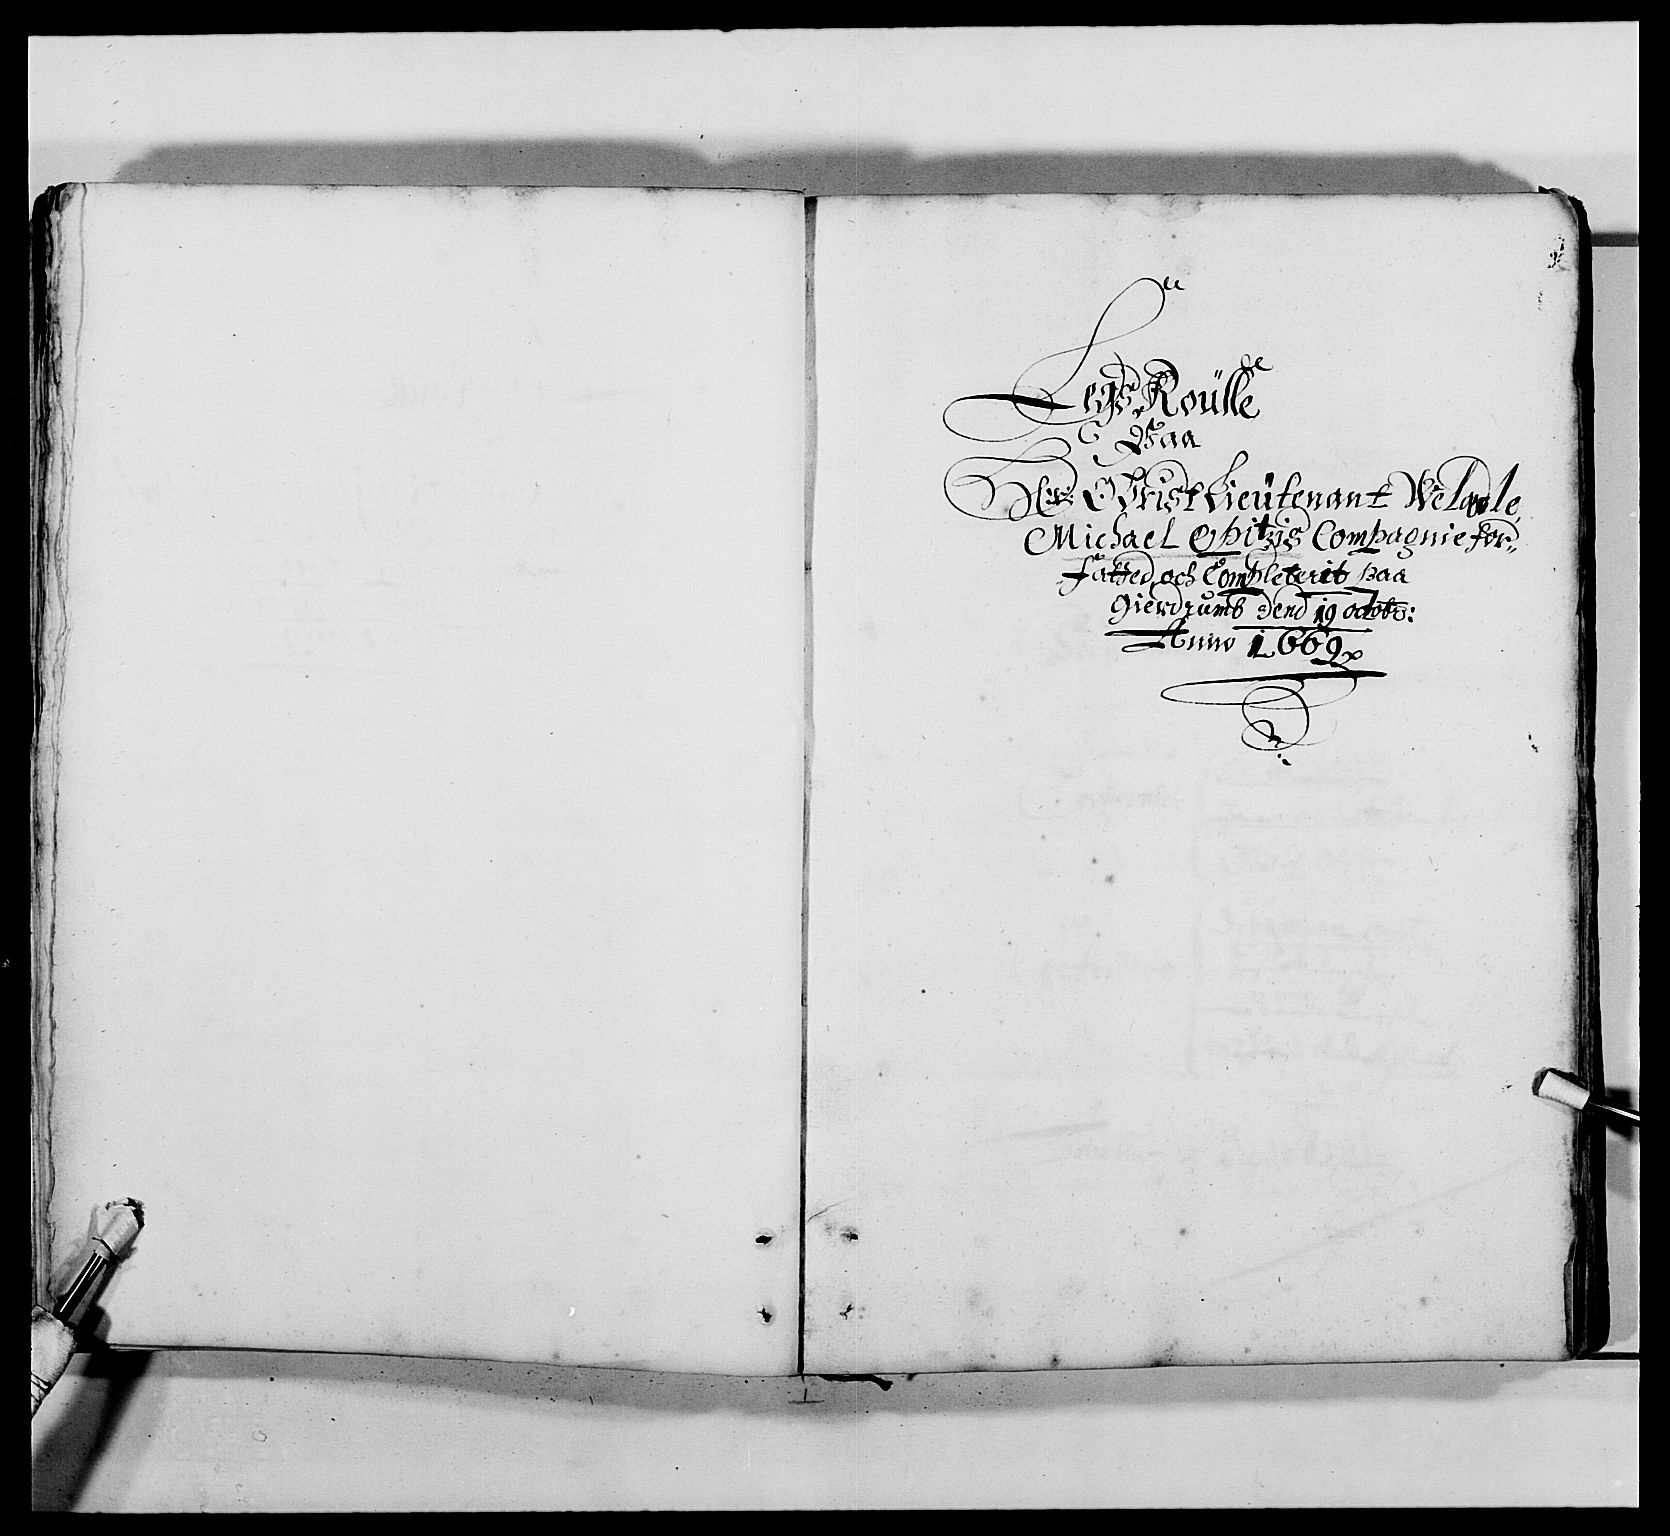 Legs Roülle
Paa
Hr: Obrist Lieütenant Welædle
Michael Opitzis Compagnie for„
fatted och Completerit paa
Gierdrumb dend 19 octobr:
Anno 1669